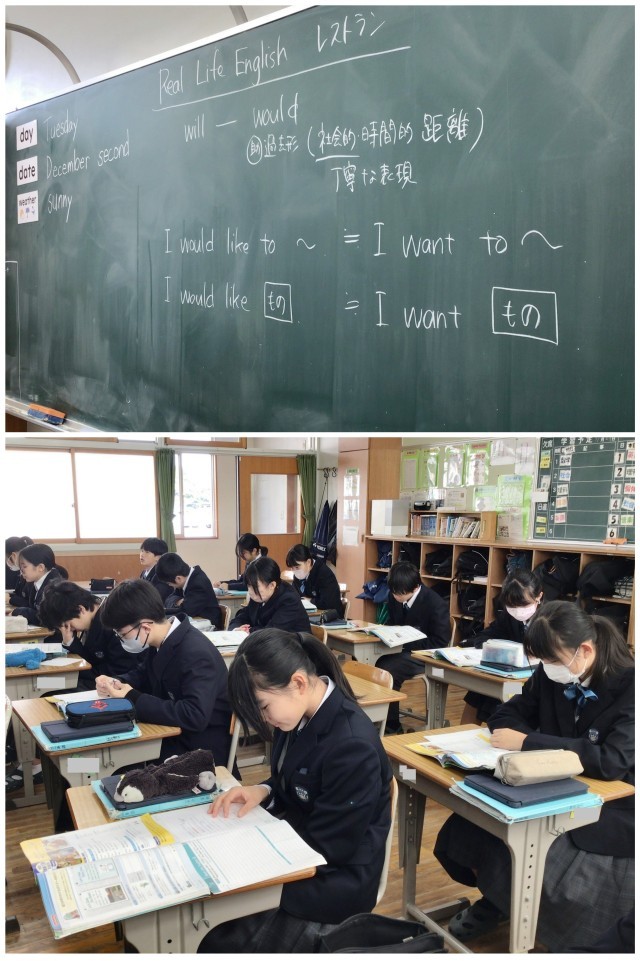 Real Life English レストラン
day Tuesday
date December second
weather sunny
will — would
助 過去形 (社会的 時間的 距離)
丁寧な表現
I would like to ～ ≒ I want to ～
I would like もの ≒ I want もの